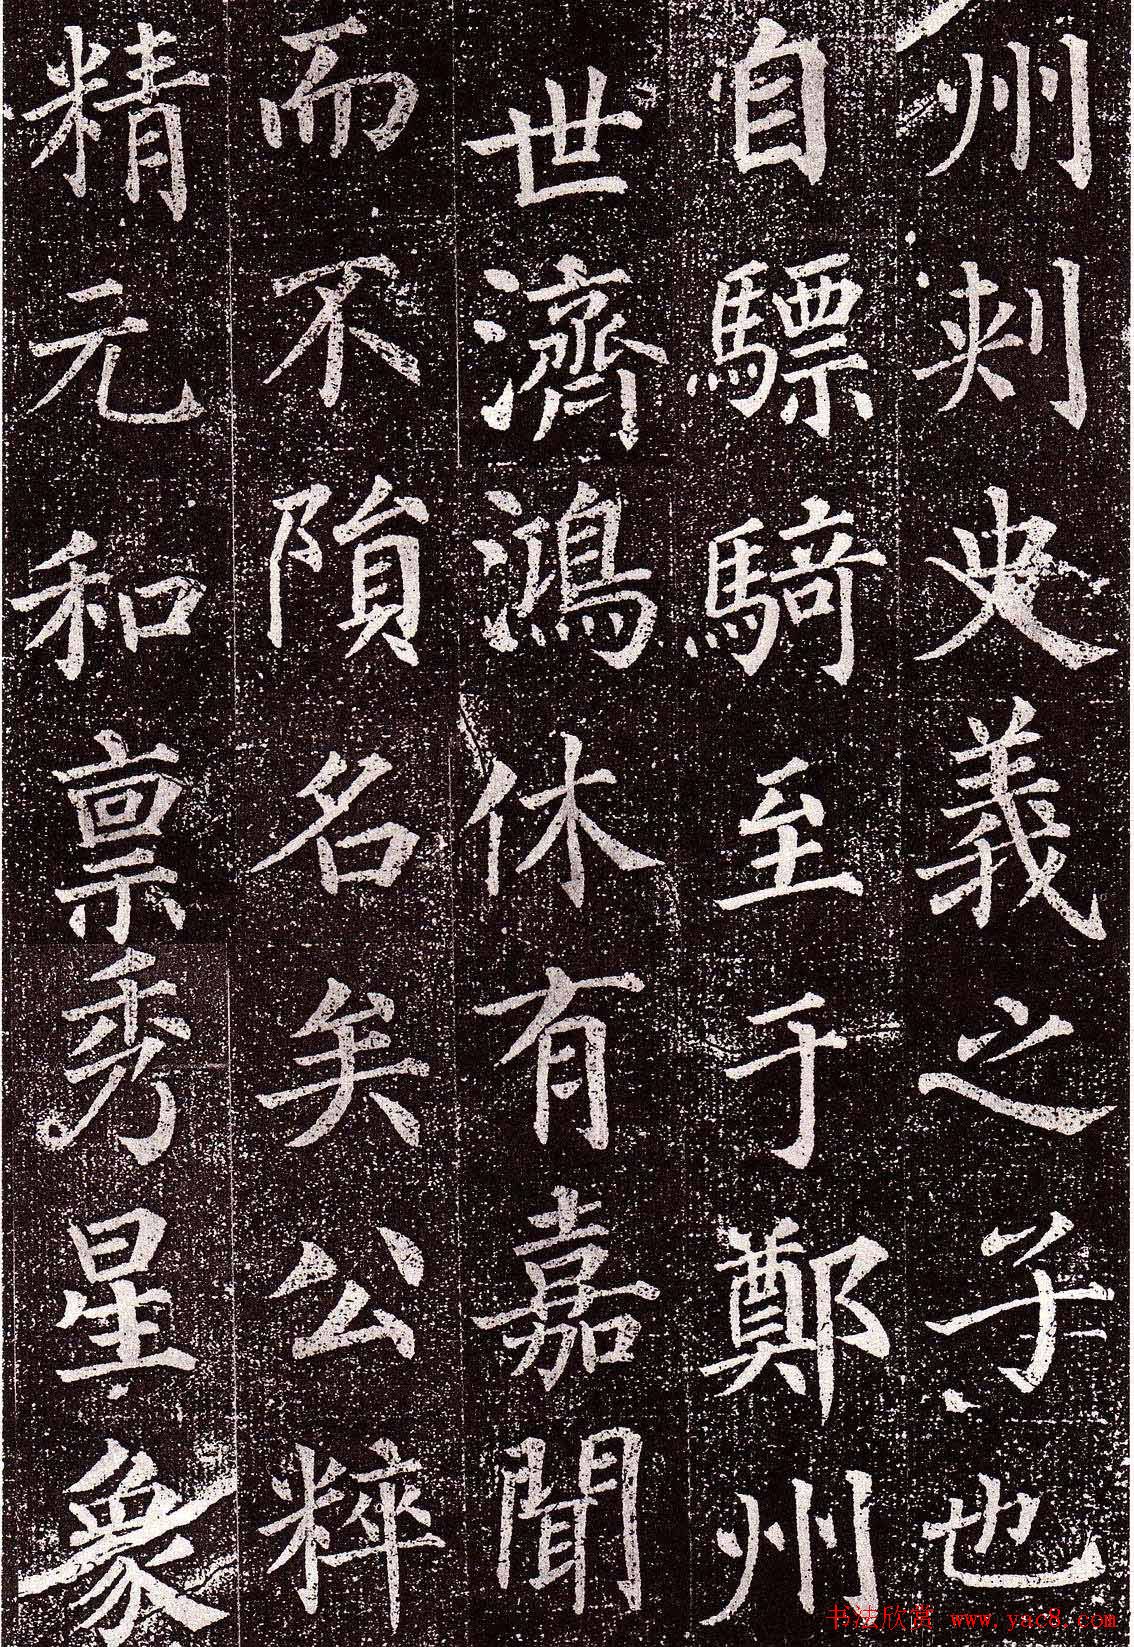 州刺史義之子也
自驃騎至于鄭州
世濟鴻休有嘉聞
而不隕名矣公粹
精元和禀秀星象
书法欣赏 www.yac8.com